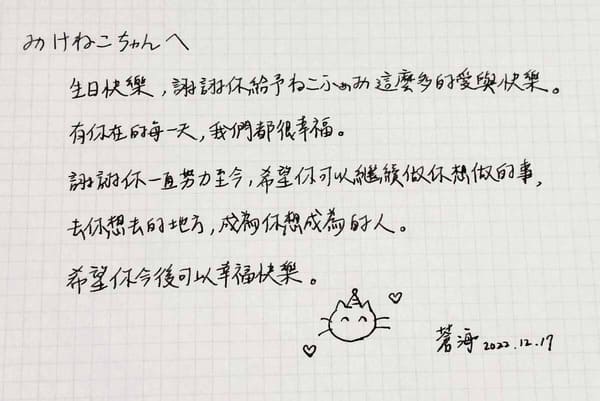 みけねこちゃんへ
生日快樂，謝謝你給予ねこふぁみ這麼多的愛與快樂。
有你在的每一天，我們都很幸福。
謝謝你一直努力至今，希望你可以繼續做你想做的事，
去你想去的地方，成為你想成為的人。
希望你今後可以幸福快樂。
蒼海 2022.12.17